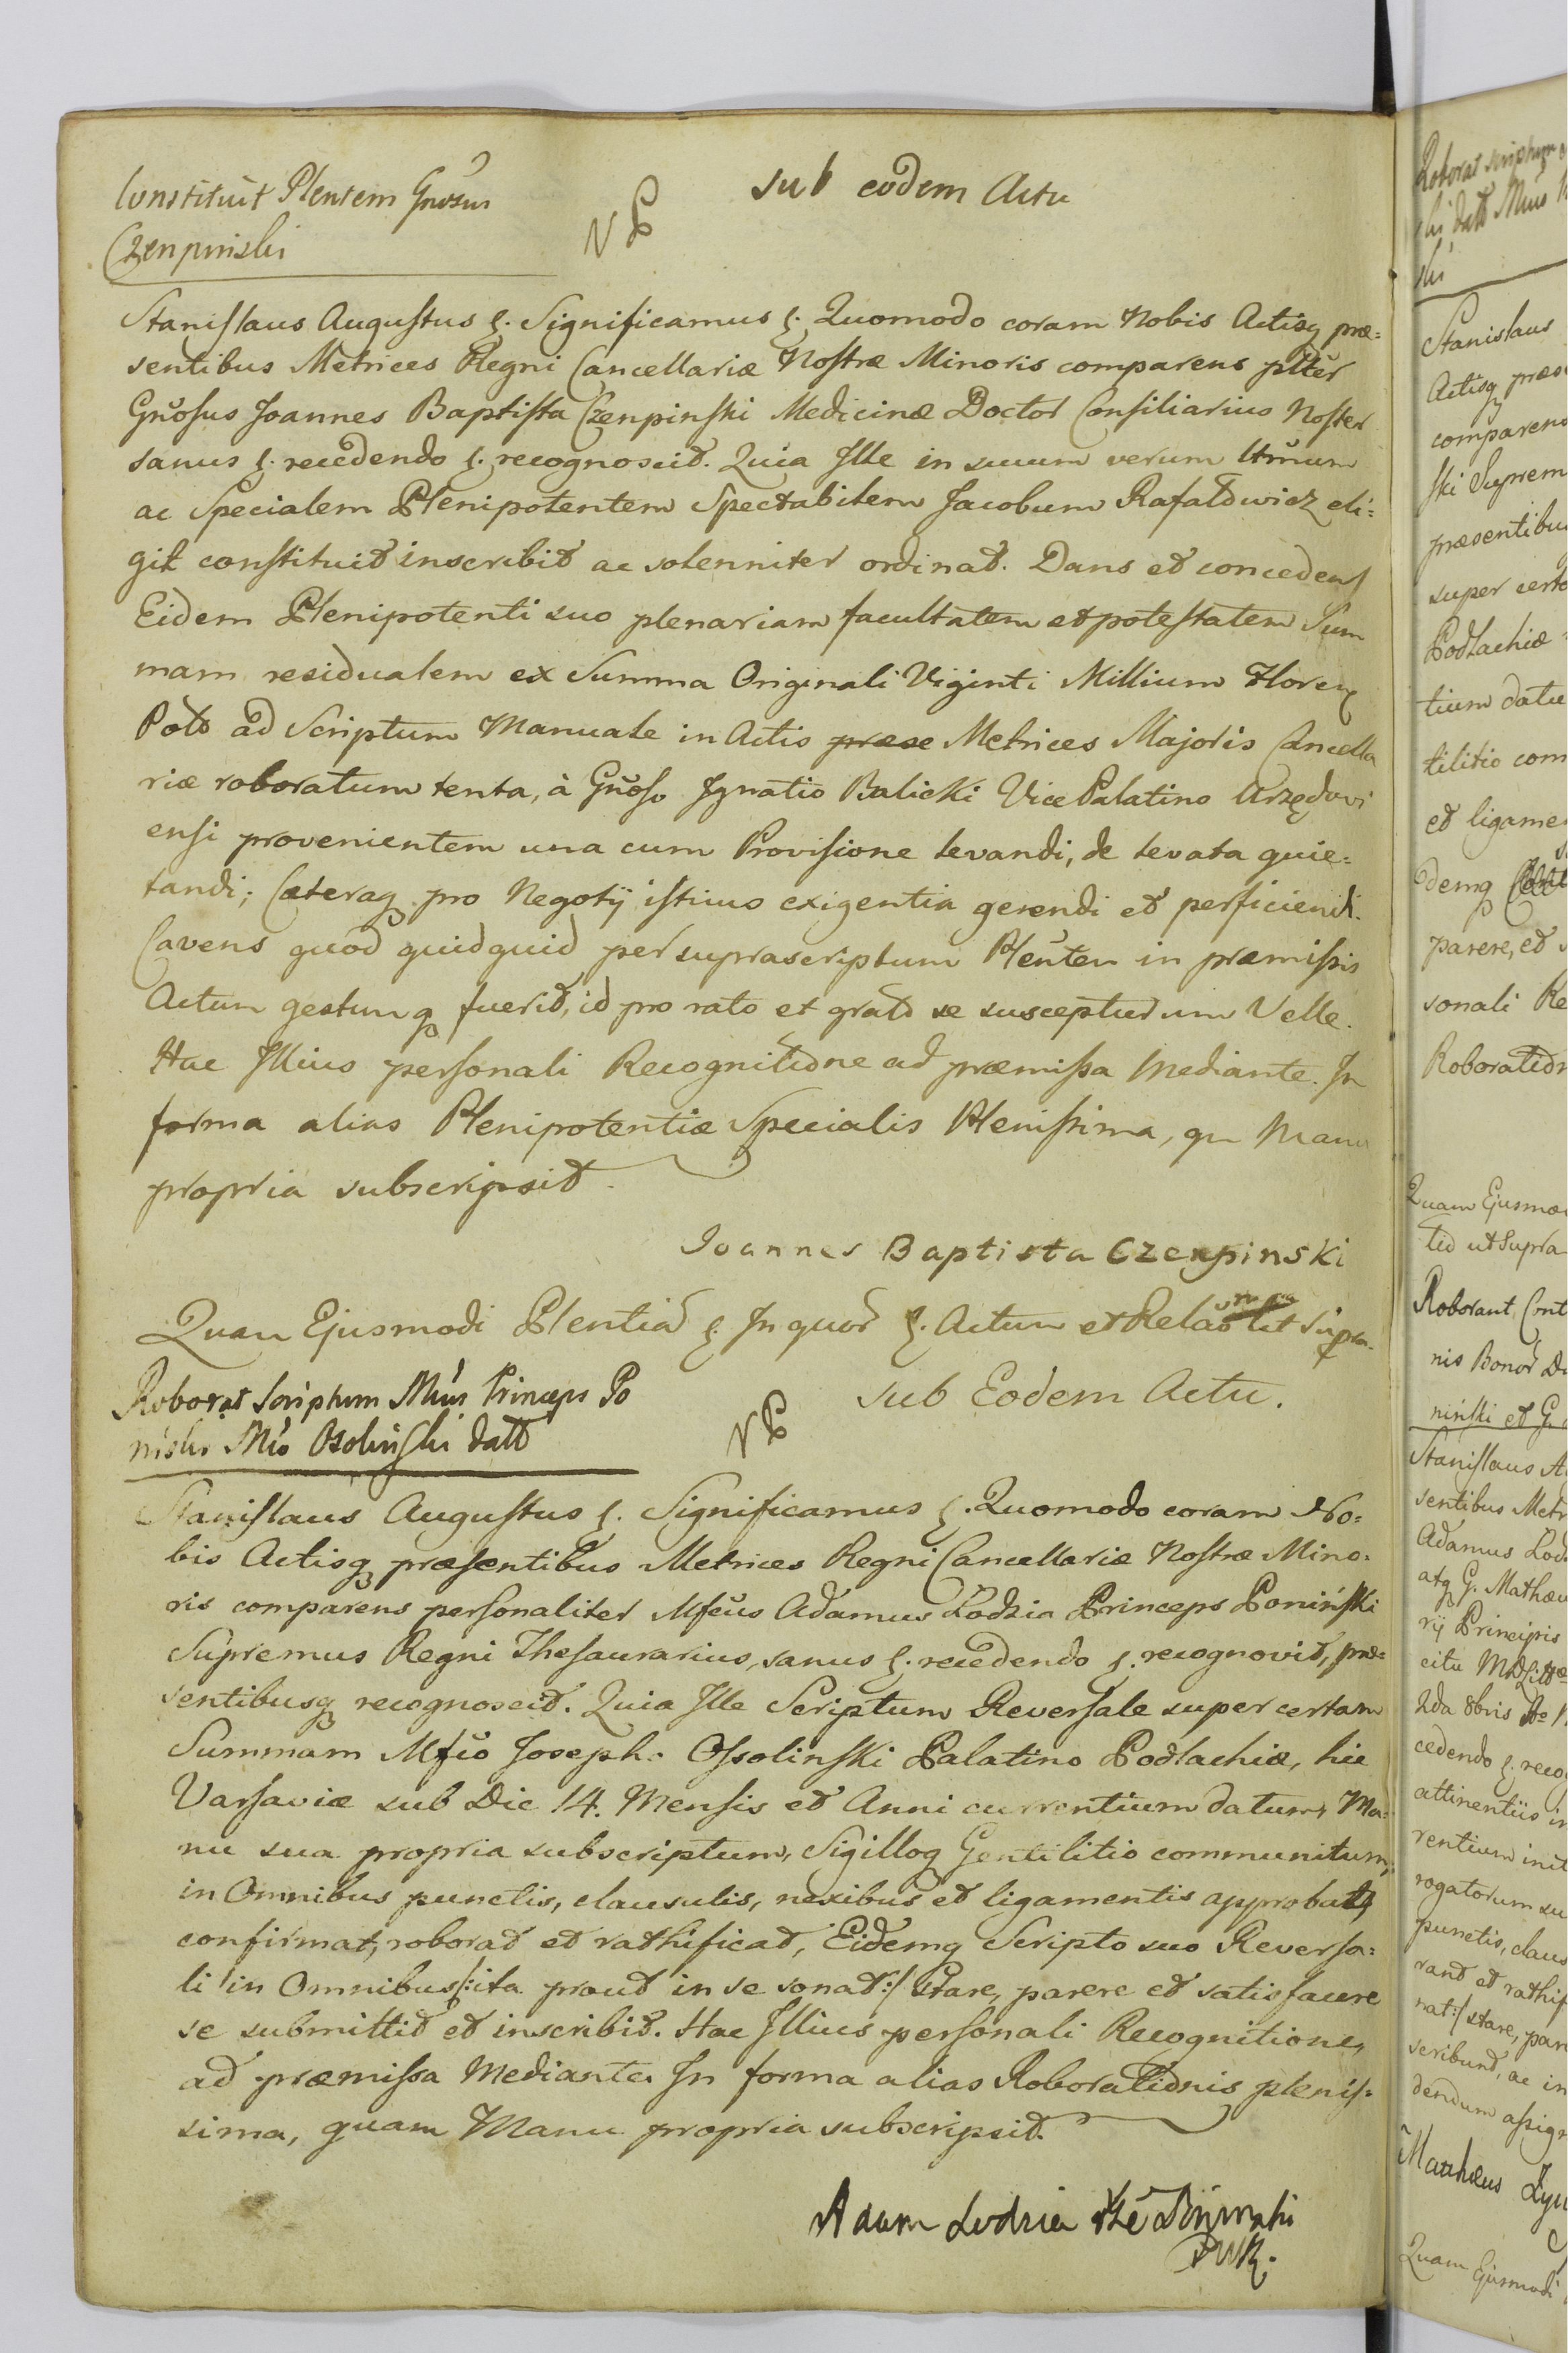 Constituit Plentem Gnosus
Czenpinski
sub eodem Actu
NP
Stanislaus Augustus &. Significamus &. Quomodo coram Nobis Actisq præ=
sentibus Metrices Regni Cancellariæ Nostræ Minoris comparens plter
Gnosus Joannes Baptista Czenpinski Medicinæ Doctor Consiliarius Noster
sanus &. recedendo &. recognoscit. Quia Ille in suum verum ltmum
ac Specialem Plenipotentem Spectabilem Jacobum Rafałowicz eli=
git constituit inscribit ac solenniter ordinat. Dans et concedens
Eidem Plenipotenti suo plenariam facultatem et potestatem Sum
mam residualem ex Summa Originali Viginti Millium Floren
Polo ad Scriptum Manuale in Actis præse Metrices Majoris Cancella
riæ roboratum tenta, à Gnoso Ignatio Balicki Vice Palatino Urzędovi
ensi provenientem una cum Provisione levandi, de levata quie=
tandi; Cæteraq pro Negotij istius exigentia gerendi et perficiendi.
Cavens quod quidquid per suprascriptum Plentem in præmissis
Actum gestumq fuerit, id pro rato et grato se suscepturum Velle.
Hac Illius personali Recognitione ad præmissa Mediante. In
forma alias Plenipotentiæ Specialis Plenissima, qm Manu
propria subscripsit.
Joannes Baptista Czenpinski
Quam Ejusmodi Plentiã &. In quor &. Actum et Relao ut Supra.
Roborat Scriptum Mcus Princeps Po
niski Mco Osolinski datt
NP
sub Eodem Actu.
Stanislaus Augustus &. Significamus &. Quomodo coram No=
bis Actisq præsentibus Metrices Regni Cancellariæ Nostræ Mino=
ris comparens personaliter Mfcus Adamus Łodzia Princeps Poniński
Supremus Regni Thesaurarius, sanus &. recedendo &. recognovit, præ=
sentibusq recognoscit. Quia Ille Scriptum Reversale super certam
Summam Mfco Joseph: Ossolinski Palatino Podlachiæ, hic
Varsaviæ sub Die 14. Mensis et Anni currentium datum, Ma=
nu sua propria subscriptum, Sigilloq Gentilitio communitum,
in Omnibus punctis, clausulis, nexibus et ligamentis approbat,
confirmat, roborat et rathificat, Eidemq Scripto suo Reversa=
li in Omnibus/:ita prout in se sonat:/ Stare, parere et satisfacere
se submittit et inscribit. Hac Illius personali Recognitione,
ad præmissa Mediante. In forma alias Roborationis plenis=
sima, quam Manu propria subscripsit.
Adam Lodzia
PWK.
Stanislaus
Actisq præse
comparens
ski Suprem
præsentibus
super certo
Podlachiæ
tium datu
tilitio com
et ligamen
demq
parere, et
sonali Re
Roboration
Quam Ejusmo
tio ut Supra
Roborant Cont
nis Bonor
ninski et G.
Stanislaus A
sentibus Metr
Adamus Lod
atq G. Mathæu
rij Principis
cedendo &. reco
attinentiis in
rentium init
rogatorum su
punctis, claus
rant et rathif
nat:/ stare, pare
scribunt, ac in
dendum assign
Matthæus
Quam Ejusmodi